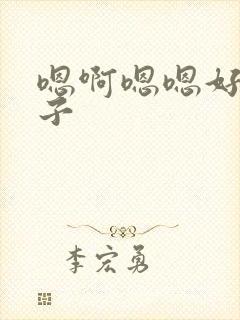 嗯啊嗯嗯好
子
李宏勇